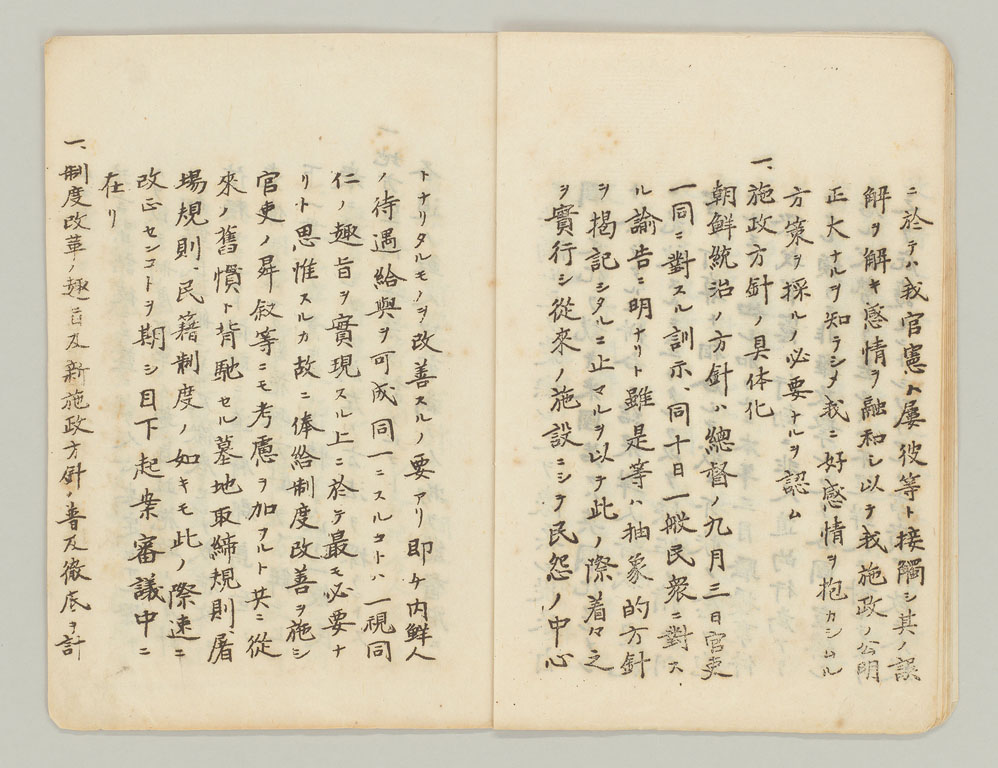 ニ於テハ我官憲ト屢彼等ト接觸シ其ノ誤
解ヲ解キ感情ヲ融和シ以テ我施政ノ公明
正大ナルヲ知ラシメ我ニ好感情ヲ抱カシムル
方策ヲ採ルノ必要ナルヲ認ム
一、施政方針ノ具体化
朝鮮統治ノ方針ハ總督ノ九月三日官吏
一同ニ對スル訓示、同十日一般民衆ニ對ス
ル諭告ニ明ナリト雖是等ハ抽象的方針
ヲ揭記シタルニ止マルヲ以テ此ノ際着々之
ヲ實行シ從來ノ施設ニシテ民怨ノ中心
トナリタルモノヲ改善スルノ要アリ即チ内鮮人
ノ待遇給與ヲ可成同一ニスルコトハ一視同
仁ノ趣旨ヲ實現スル上ニ於テ最モ必要ナ
リト思惟スルカ故ニ俸給制度改善ヲ施シ
官吏ノ昇敍等ニモ考慮ヲ加フルト共ニ從
來ノ舊慣ト背馳セル墓地取締規則、屠
場規則、民籍制度ノ如キモ此ノ際速ニ
改正センコトヲ期シ目下起案審議中ニ
在リ
一、制度改革ノ趣旨及新施政方針ノ普及徹底ヲ計